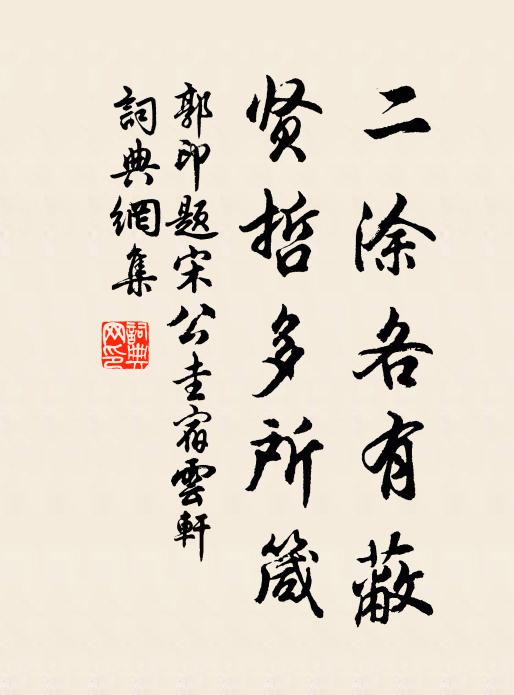 二涂各有蔽
贤哲多所箴
郭印题宋公圭宿雲軒
詞典網集
詞典网印